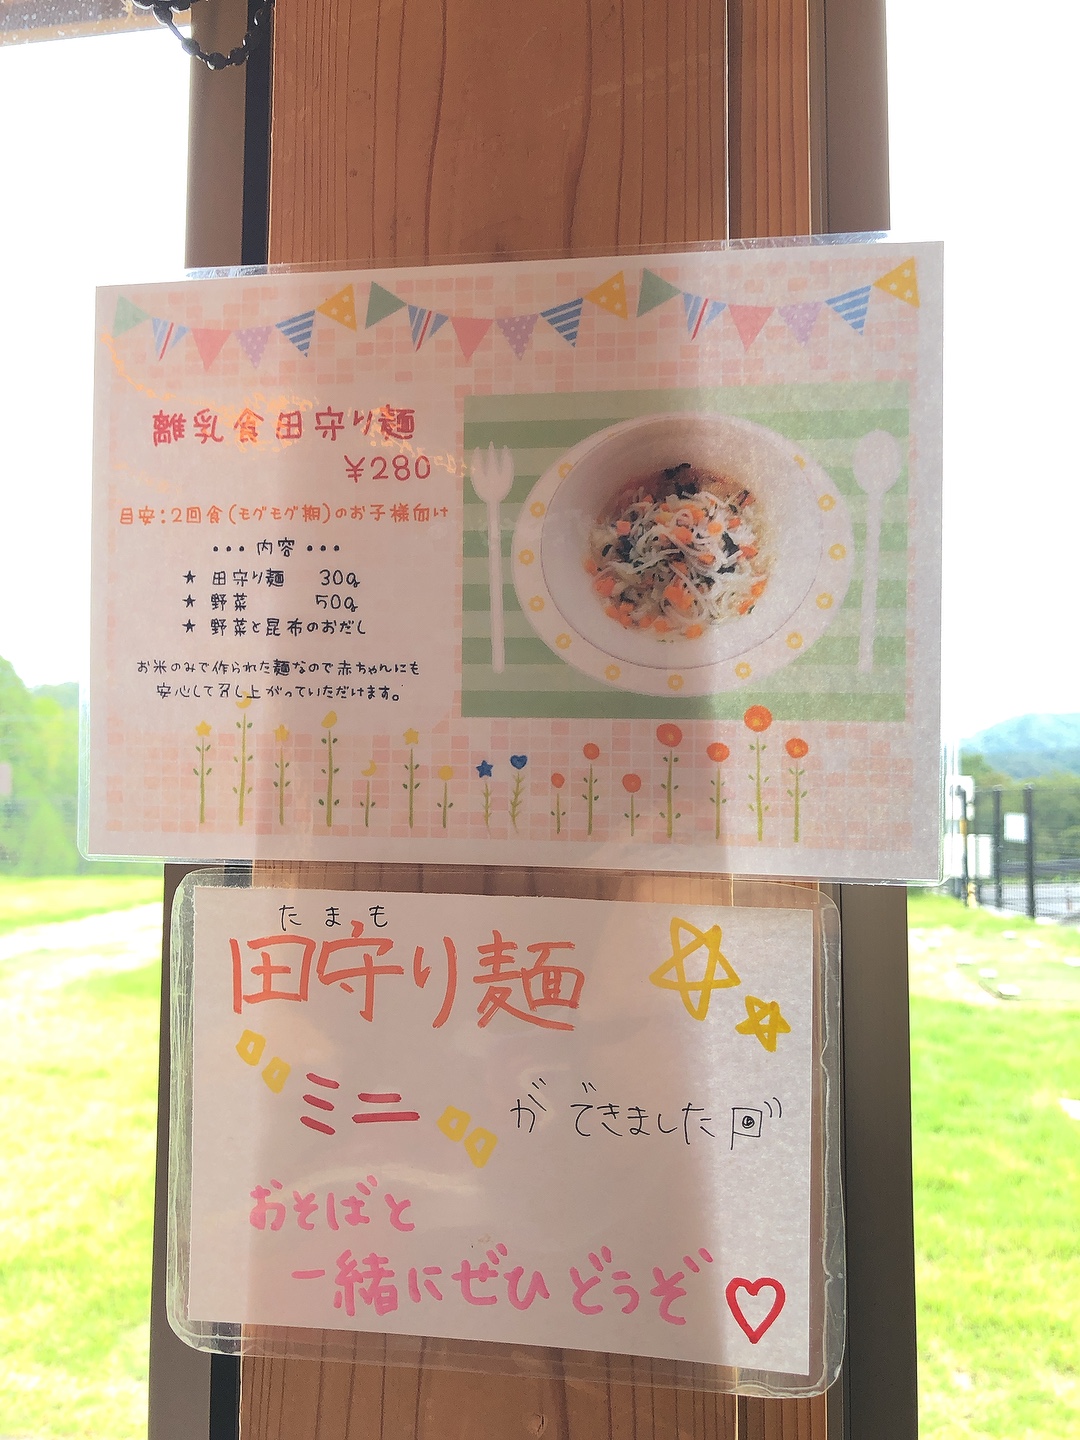 離乳食田守り麺
¥280
目安:2回食(モグモグ期)のお子様向け
・・・ 内容 ・・・
★ 田守り麺 30g
★ 野菜 50g
★ 野菜と昆布のおだし
お米のみで作られた麺なので赤ちゃんにも
安心して召し上がっていただけます。
たまも
田守り麺
ミニ ができました
おそばと
一緒にぜひどうぞ